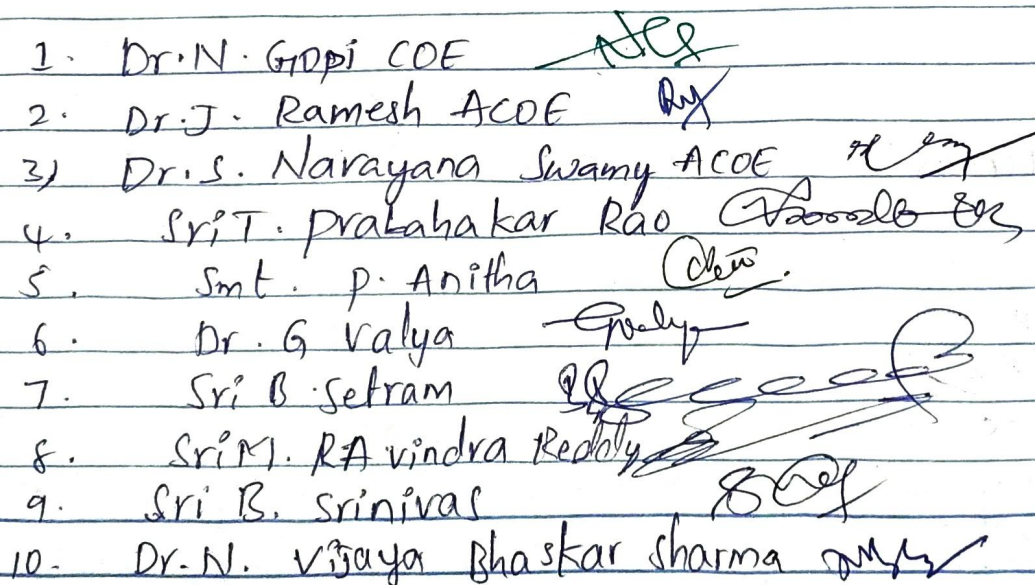 1. Dr. N. Gopi COE
2. Dr. J. Ramesh ACOE
3) Dr. S. Narayana Swamy ACOE
4. Sri T. Prabahakar Rao
5. Smt. P. Anitha
6. Dr. G Valya
7. Sri B. Setram
8. Sri M. RAvindra Reddy
9. Sri B. Srinivas
10. Dr. N. Vijaya Bhaskar Sharma